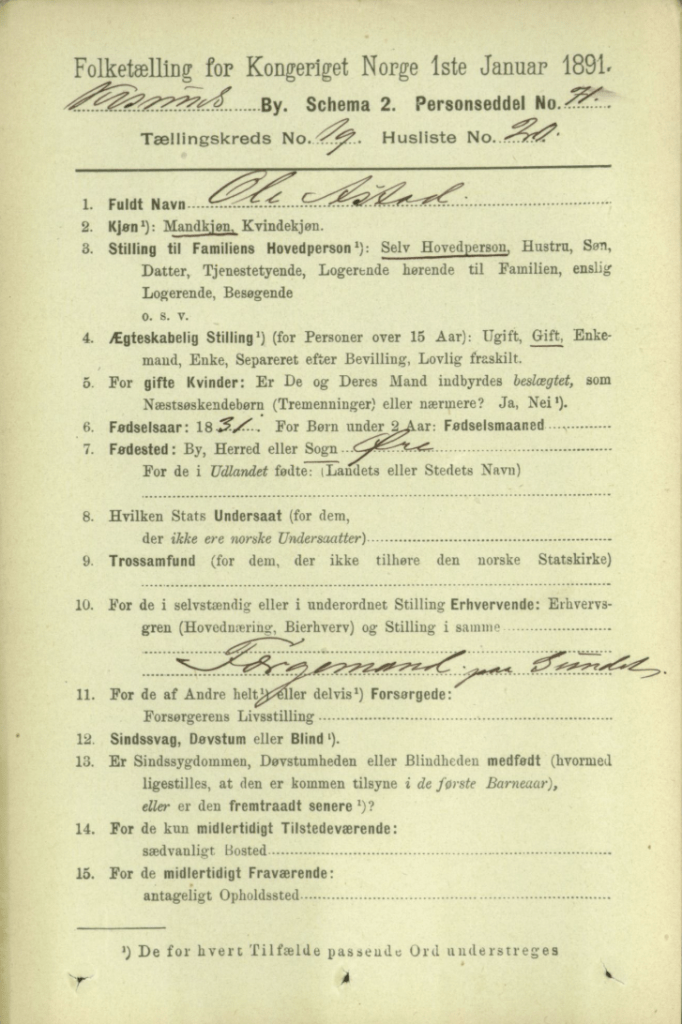 Folketælling for Kongeriget Norge 1ste Januar 1891.
By. Schema 2. Personseddel No. 71.
Tællingskreds No. 19. Husliste No. 20.
1. Fuldt Navn Ole Astad.
2. Kjøn¹): Mandkjøn, Kvindekjøn.
3. Stilling til Familiens Hovedperson¹): Selv Hovedperson, Hustru, Søn,
Datter, Tjenestetyende, Logerende hørende til Familien, enslig
Logerende, Besøgende
o. s. v.
4. Ægteskabelig Stilling¹) (for Personer over 15 Aar): Ugift, Gift, Enke-
mand, Enke, Separeret efter Bevilling, Lovlig fraskilt.
5. For gifte Kvinder: Er De og Deres Mand indbyrdes beslægtet, som
Næstsøskendebørn (Tremenninger) eller nærmere? Ja, Nei¹).
6. Fødselsaar: 1831. For Børn under 2 Aar: Fødselsmaaned
7. Fødested: By, Herred eller Sogn Øre
For de i Udlandet fødte: (Landets eller Stedets Navn)
8. Hvilken Stats Undersaat (for dem,
der ikke ere norske Undersaatter)
9. Trossamfund (for dem, der ikke tilhøre den norske Statskirke)
10. For de i selvstændig eller i underordnet Stilling Erhvervende: Erhvervs-
gren (Hovednæring, Bierhverv) og Stilling i samme
Færgemand paa Sundet.
11. For de af Andre helt¹) eller delvis¹) Forsørgede:
Forsørgerens Livsstilling
12. Sindssvag, Døvstum eller Blind¹).
13. Er Sindssygdommen, Døvstumheden eller Blindheden medfødt (hvormed
ligestilles, at den er kommen tilsyne i de første Barneaar),
eller er den fremtraadt senere¹)?
14. For de kun midlertidigt Tilstedeværende:
sædvanligt Bosted
15. For de midlertidigt Fraværende:
antageligt Opholdssted
¹) De for hvert Tilfælde passende Ord understreges